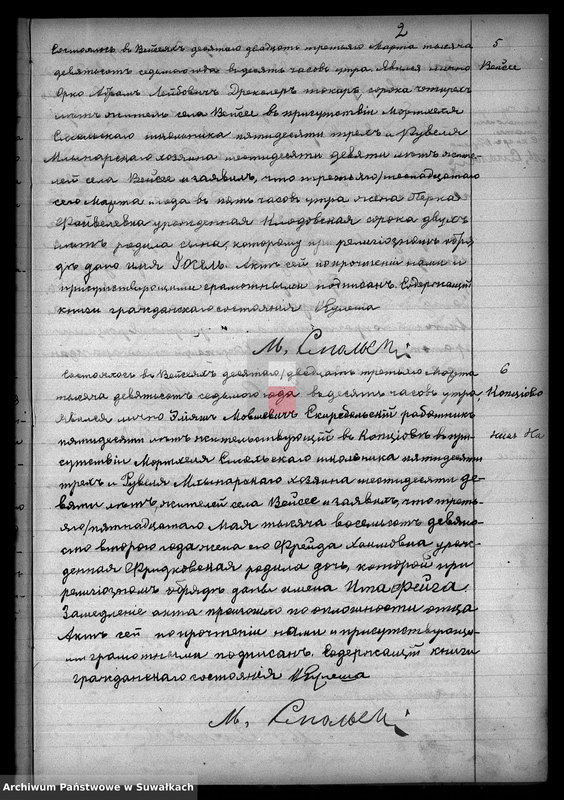 2
Состоялось въ Вейсеяхъ десятаго двадцать третьяго Марта тысяча
девятьсотъ седьмого года въ десять часовъ утра. Явился лично
Абрамъ Лейбовичъ токарь сорока четырехъ
лѣтъ житель села Вейсее въ присутствіи Мортхеля
Смольскаго школьника пятидесяти трехъ и Рувеля
Млынарскаго хозяина шестидесяти девяти лѣтъ жите-
лей села Вейсее и заявилъ, что третьяго/шестнадцатаго
сего Марта и года въ пять часовъ утра жена Перка
Файвелевна урожденная сорока двухъ
лѣтъ родила сына, которому при религіозномъ обря-
дѣ дано имя Іосель. Актъ сей по прочтеніи нами и
присутствующими грамотными подписанъ. Содержащій
книги гражданскаго состоянія
М. Смольскі
5
Вейсее
Состоялось въ Вейсеяхъ десятаго/двадцать третьяго Марта
тысяча девятьсотъ седьмого года въ десять часовъ утра,
явился лично Мовшевичъ Скаребельскій работникъ
пятидесяти лѣтъ жительствующій въ Копціовѣ въ при-
сутствіи Мортхеля Смольскаго школьника пятидесяти
трехъ и Рувеля Млынарскаго хозяина шестидесяти де-
вяти лѣтъ, жителей села Вейсее и заявилъ, что треть-
яго/пятнадцатаго Мая тысяча восемьсотъ девяно-
сто второго года жена его Фрейда Хаимовна урож-
денная Фридковская родила дочь, которой при
религіозномъ обрядѣ даны имена Ита Фейга.
Замедленіе акта произошло по оплошности отца
Актъ сей по прочтеніи нами и присутствующи-
ми грамотными подписанъ. Содержащій книги
гражданскаго состоянія
М. Смольскі
6
Копціово
Archiwum Państwowe w Suwałkach